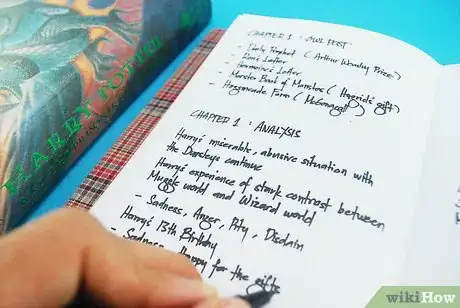 HARRY POTTER
CHAPTER 1 : OWL POST
- Daily Prophet ( Arthur Weasley Prize)
- Ron's Letter
- Hermione's Letter
- Monster Book of Monsters ( Hagrid's gift)
- Hogsmeade Form ( McGonagall)
CHAPTER 1 : ANALYSIS
Harry's miserable, abusive situation with
the Dursleys continue
Harry's experience of stark contrast between
Muggle world and Wizard world
- Sadness, Anger, Pity, Disdain
Harry's 13th Birthday
- Sadness, Happy for the gifts
wikiHow